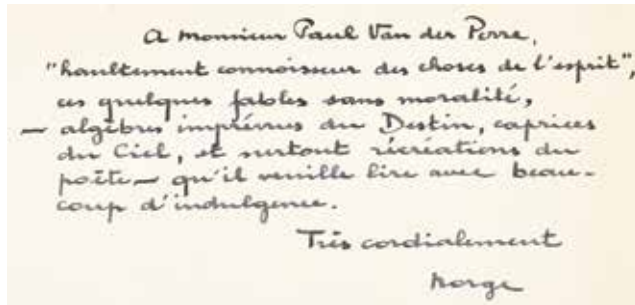 A monsieur Paul Van der Perre,
"haultement connoisseur des choses de l'esprit",
ces quelques fables sans moralité,
— algèbres imprévus du Destin, caprices
du Ciel, et surtout récréations du
poëte — qu'il veuille lire avec beau-
coup d'indulgence.
Très cordialement
Norge